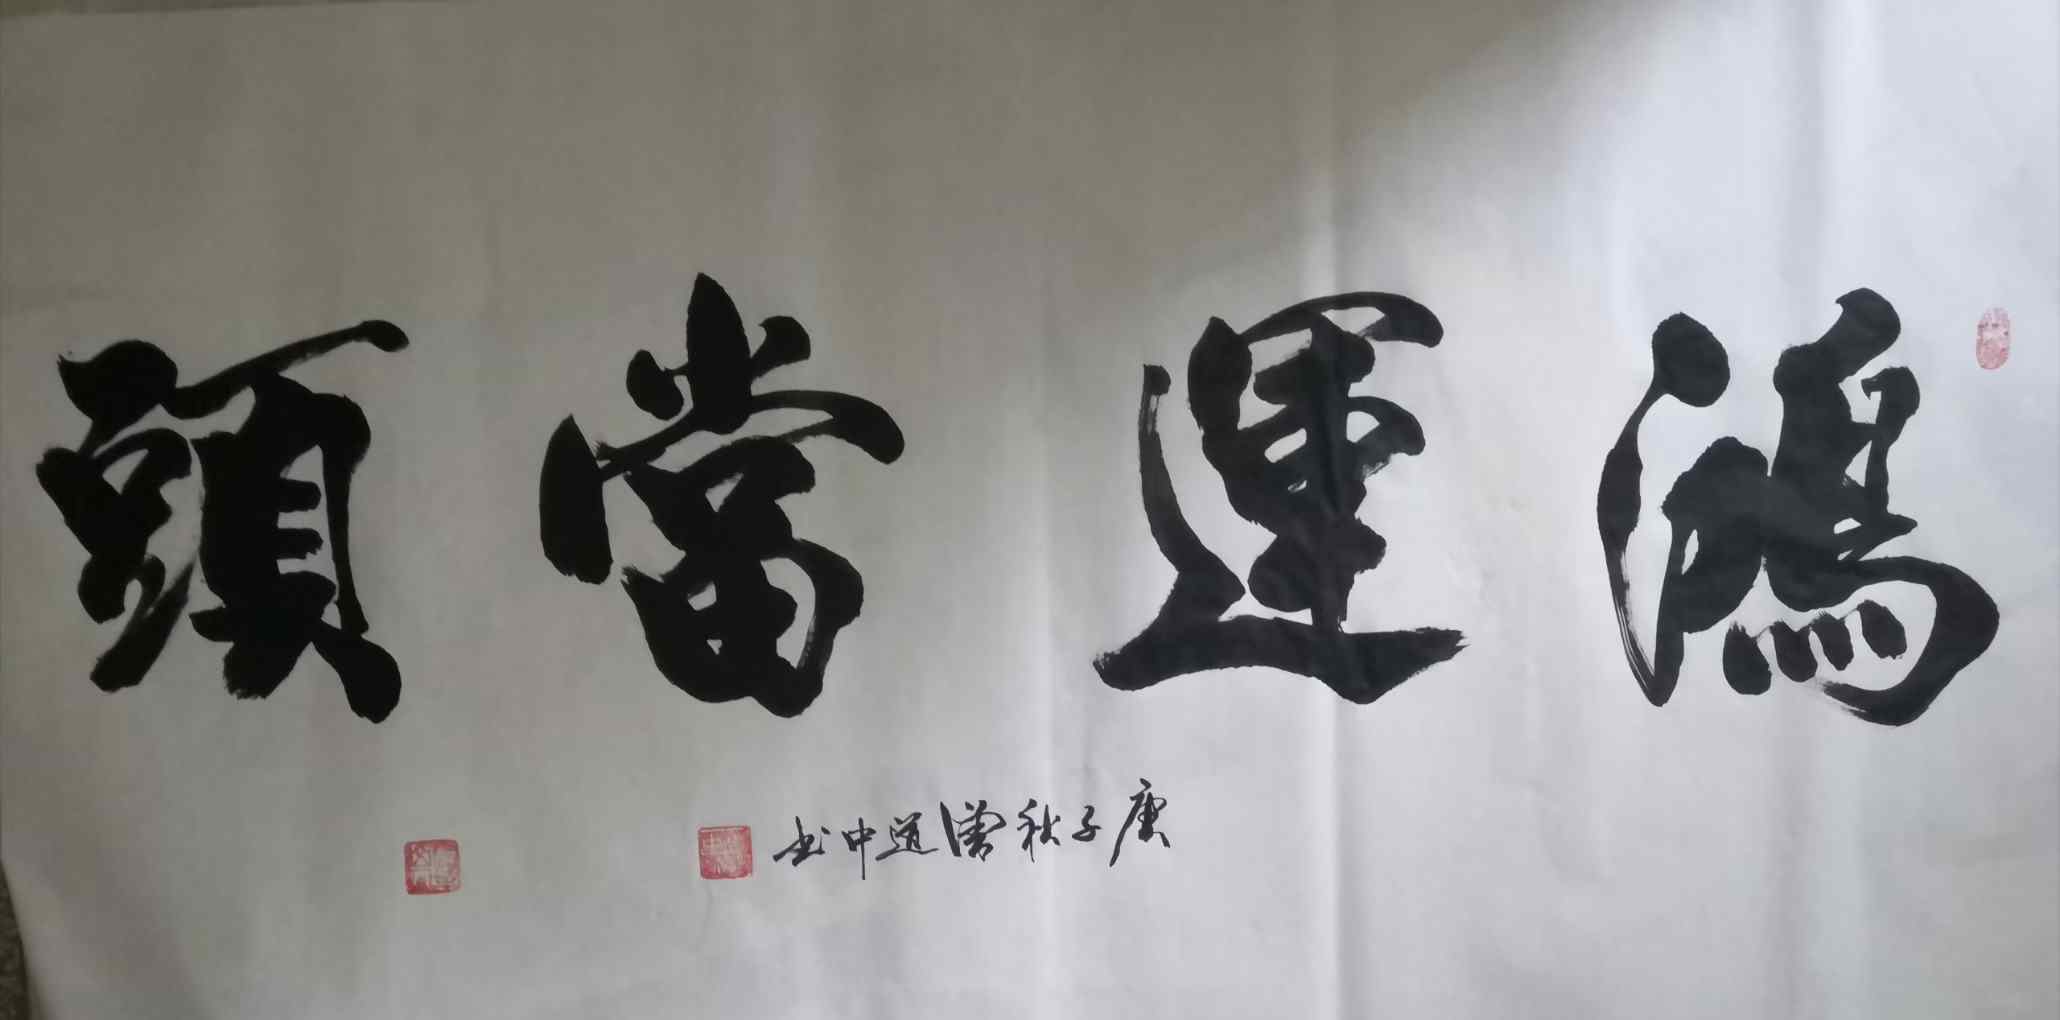 鴻運當頭
庚子秋潘道中书